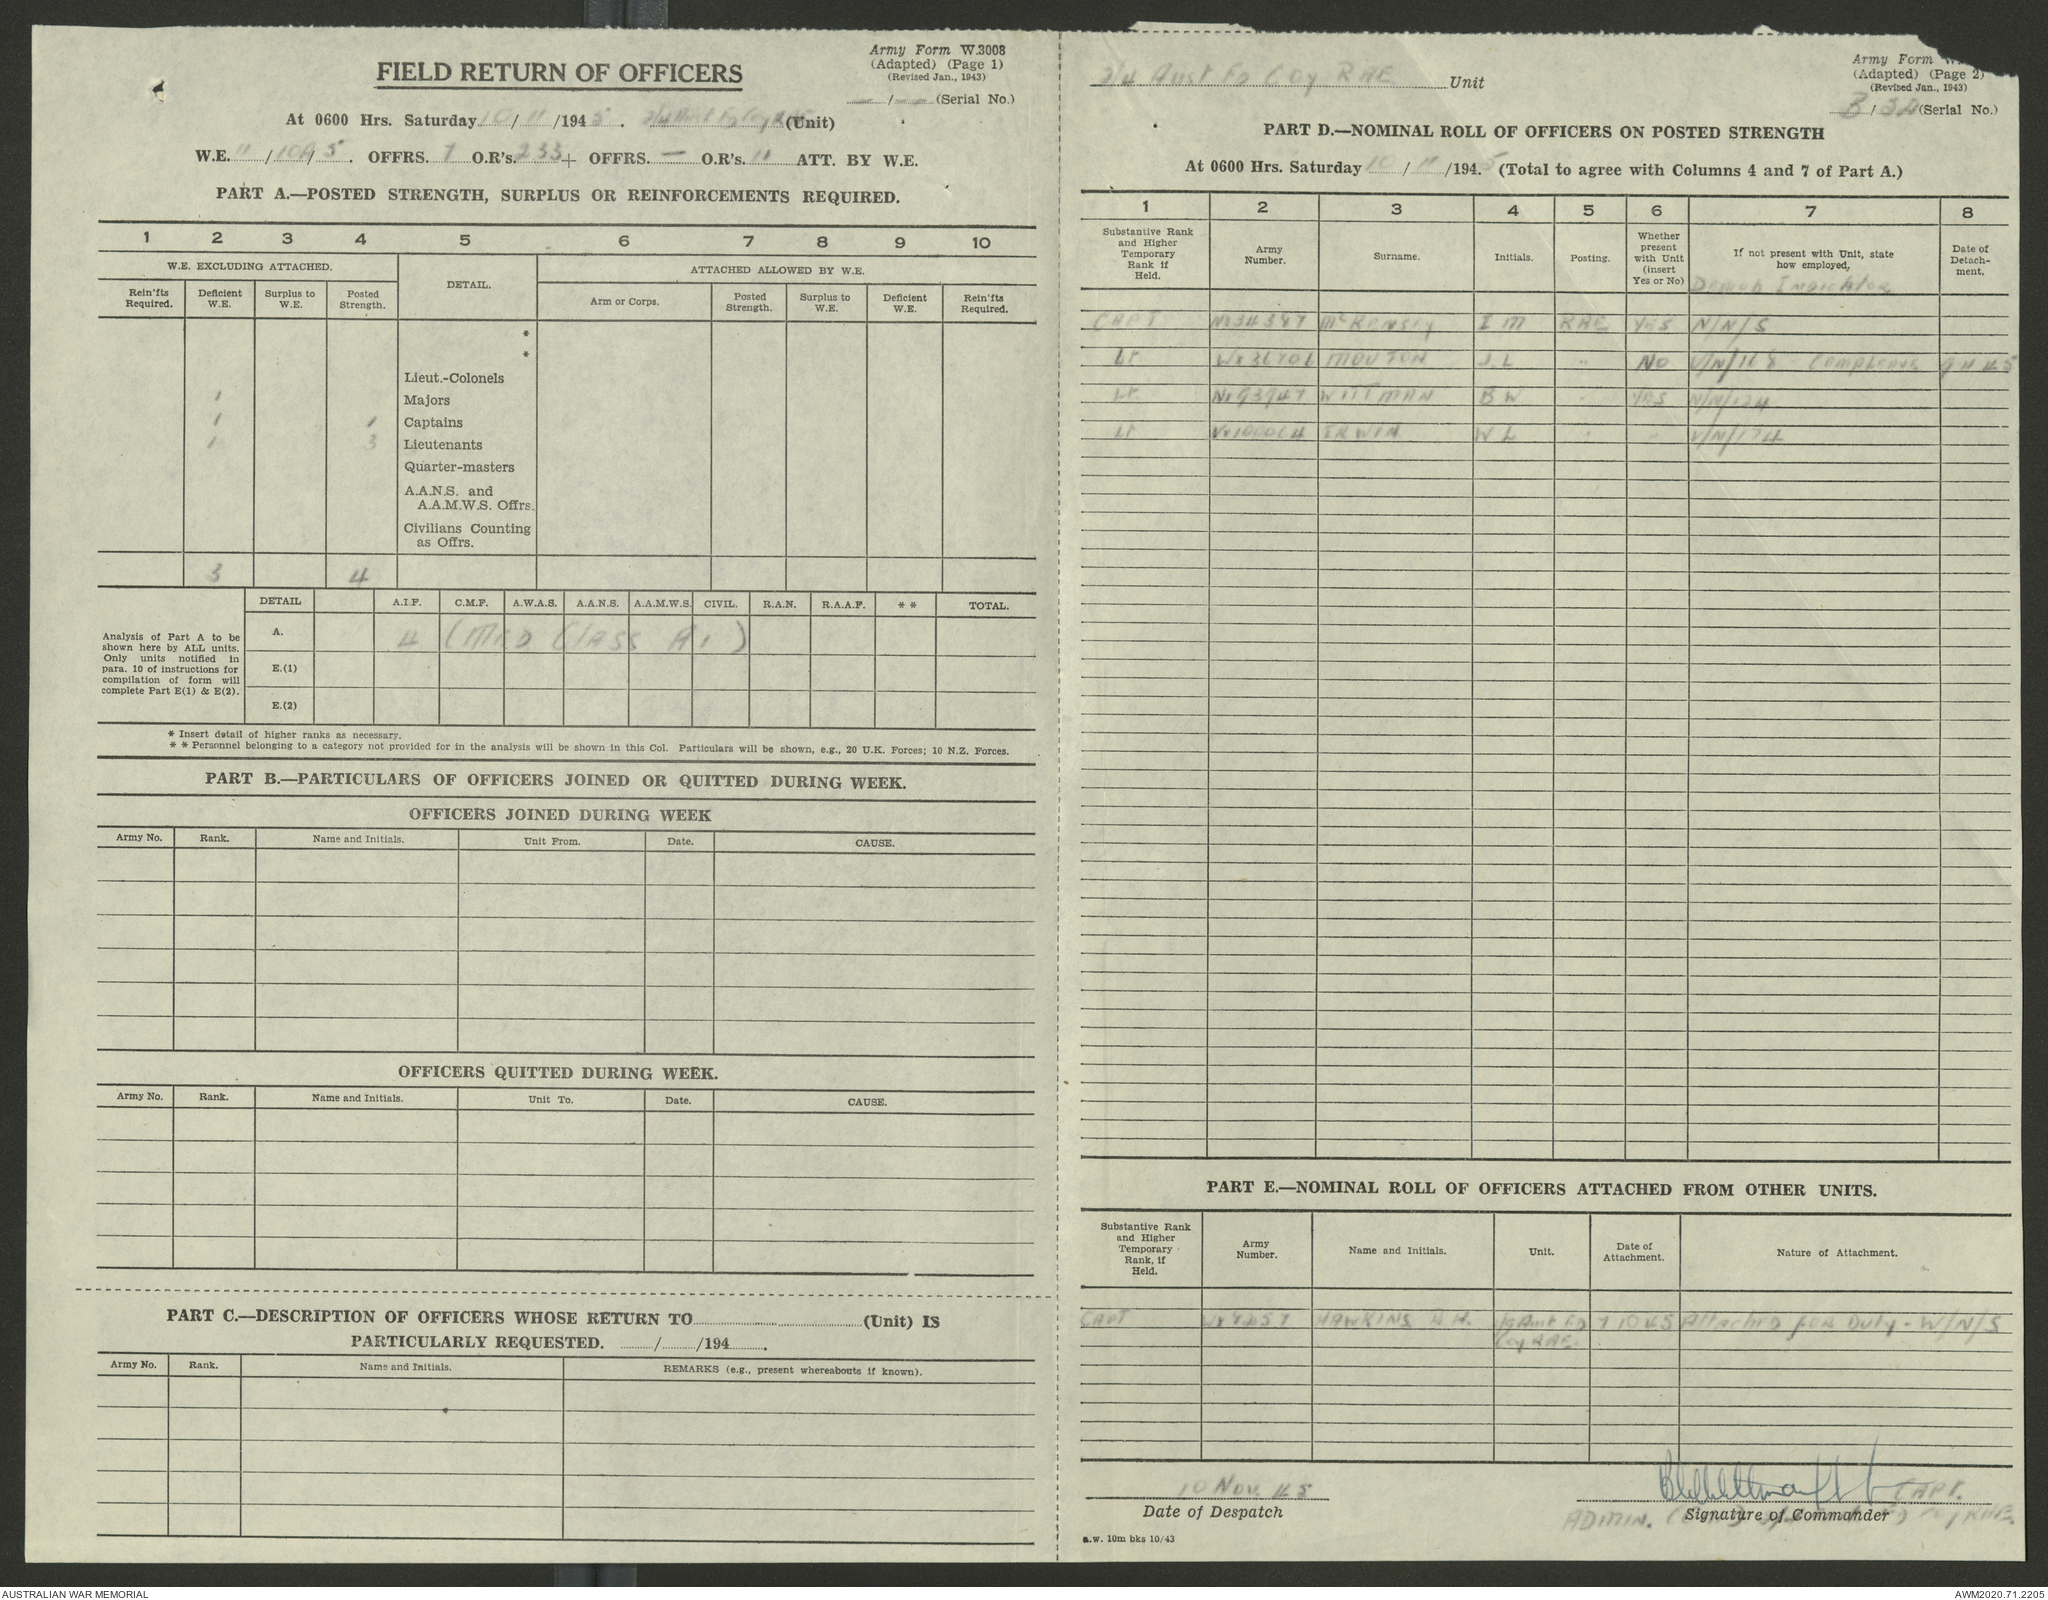 Army Form W.3008
(Adapted) (Page 1)
(Revised Jan., 1943)
— / — (Serial No.)
FIELD RETURN OF OFFICERS
At 0600 Hrs. Saturday 10 / 11 /1945. 2/4 Aust Fd Coy RAE (Unit)
W.E. 11 / 10A / 5. OFFRS. 7 O.R's. 233 + OFFRS. — O.R's. 11 ATT. BY W.E.
PART A.—POSTED STRENGTH, SURPLUS OR REINFORCEMENTS REQUIRED.
1 2 3 4 5 6 7 8 9 10
W.E. EXCLUDING ATTACHED. DETAIL. ATTACHED ALLOWED BY W.E.
Rein'fts Required. Deficient W.E. Surplus to W.E. Posted Strength. Arm or Corps. Posted Strength. Surplus to W.E. Deficient W.E. Rein'fts Required.
*
*
Lieut.-Colonels
1 Majors
1 1 Captains
1 3 Lieutenants
Quarter-masters
A.A.N.S. and
A.A.M.W.S. Offrs.
Civilians Counting
as Offrs.
3 4
DETAIL A.I.F. C.M.F. A.W.A.S. A.A.N.S. A.A.M.W.S. CIVIL. R.A.N. R.A.A.F. * * TOTAL.
Analysis of Part A to be
shown here by ALL units.
Only units notified in
para. 10 of instructions for
compilation of form will
complete Part E(1) & E(2).
A. 4 (MED CLASS A1)
E.(1)
E.(2)
* Insert detail of higher ranks as necessary.
* * Personnel belonging to a category not provided for in the analysis will be shown in this Col. Particulars will be shown, e.g., 20 U.K. Forces; 10 N.Z. Forces.
PART B.—PARTICULARS OF OFFICERS JOINED OR QUITTED DURING WEEK.
OFFICERS JOINED DURING WEEK
Army No. Rank. Name and Initials. Unit From. Date. CAUSE.
OFFICERS QUITTED DURING WEEK.
Army No. Rank. Name and Initials. Unit To. Date. CAUSE.
PART C.—DESCRIPTION OF OFFICERS WHOSE RETURN TO (Unit) IS
PARTICULARLY REQUESTED. / /194 .
Army No. Rank. Name and Initials. REMARKS (e.g., present whereabouts if known).
2/4 Aust Fd Coy RAE Unit
Army Form W.
(Adapted) (Page 2)
(Revised Jan., 1943)
B / 32 (Serial No.)
PART D.—NOMINAL ROLL OF OFFICERS ON POSTED STRENGTH
At 0600 Hrs. Saturday 10 / 11 /1945 (Total to agree with Columns 4 and 7 of Part A.)
1 2 3 4 5 6 7 8
Substantive Rank and Higher Temporary Rank if Held. Army Number. Surname. Initials. Posting. Whether present with Unit (insert Yes or No) If not present with Unit, state how employed. Date of Detachment.
Demob Indicator
CAPT McKENSEY I M RAE YES N/N/S
Lt MOUTON J L " NO Compassion 9 11 45
Lt WITTMAN B W " YES N/N/124
Lt ERWIN W L " " V/N/174
PART E.—NOMINAL ROLL OF OFFICERS ATTACHED FROM OTHER UNITS.
Substantive Rank and Higher Temporary Rank, if Held. Army Number. Name and Initials. Unit. Date of Attachment. Nature of Attachment.
CAPT HAWKINS Aust Fd 7 10 45 Attached for Duty - W/N/S
Coy RAE
10 Nov. 45
Date of Despatch
CAPT.
Signature of Commander
ADMIN. RAE.
a.w. 10m bks 10/43
AUSTRALIAN WAR MEMORIAL
AWM2020.71.2205